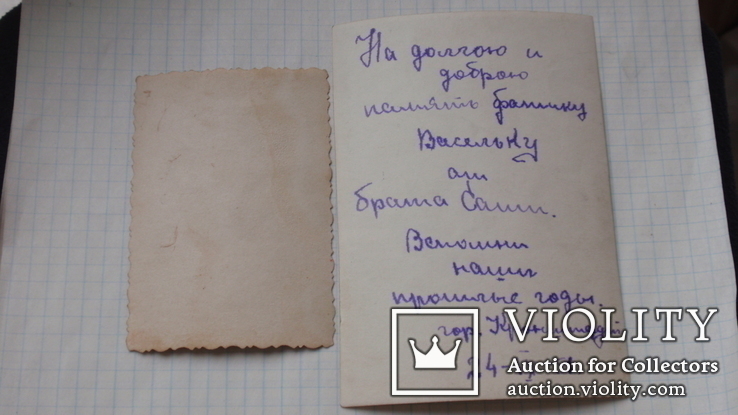 На долгою и
доброю
память братику
Василькy
от
брата Саши.
Вспомни
наши
прошлые годы.
гор. Кронштадт
24-
VIOLITY
Auction for Collectors
auction.violity.com